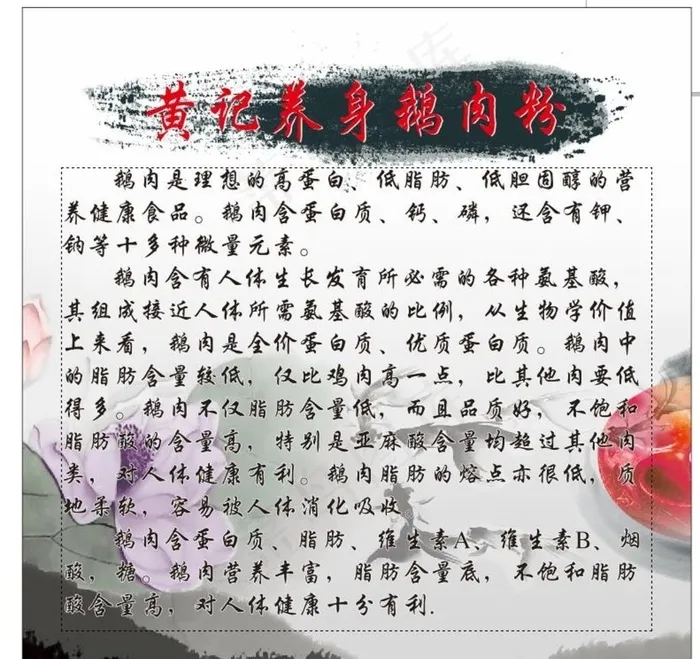 黄记养身鹅肉粉
鹅肉是理想的高蛋白、低脂肪、低胆固醇的营
养健康食品。鹅肉含蛋白质、钙、磷，还含有钾、
钠等十多种微量元素。
鹅肉含有人体生长发育所必需的各种氨基酸，
其组成接近人体所需氨基酸的比例，从生物学价值
上来看，鹅肉是全价蛋白质、优质蛋白质。鹅肉中
的脂肪含量较低，仅比鸡肉高一点，比其他肉要低
得多。鹅肉不仅脂肪含量低，而且品质好，不饱和
脂肪酸的含量高，特别是亚麻酸含量均超过其他肉
类，对人体健康有利。鹅肉脂肪的熔点亦很低，质
地柔软，容易被人体消化吸收
鹅肉含蛋白质、脂肪、维生素A、维生素B、烟
酸，糖。鹅肉营养丰富，脂肪含量底，不饱和脂肪
酸含量高，对人体健康十分有利.